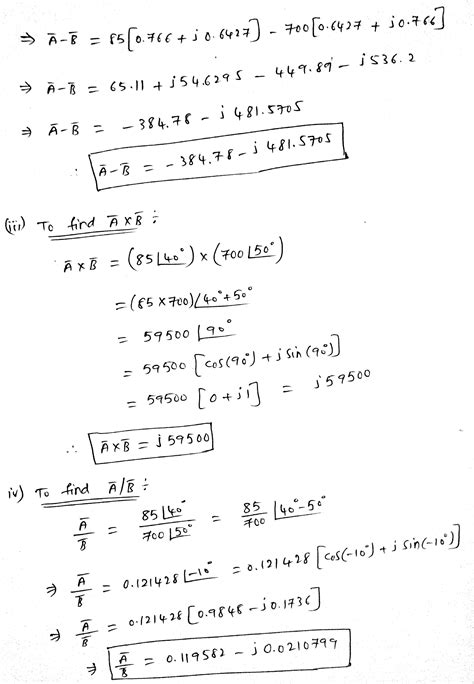 Ā-B̄ = 85[0.766 + j 0.6427] - 700[0.6427 + j0.766]
⇒ Ā-B̄ = 65.11 + j54.6295 - 449.89 - j536.2
⇒ Ā-B̄ = -384.78 - j 481.5705
∴ Ā-B̄ = -384.78 - j 481.5705
(iii) To find Ā×B̄ ÷
Ā×B̄ = (85∠40°) × (700∠50°)
= (85×700)∠40°+50°
= 59500 ∠90°
= 59500 [cos(90°) + j sin(90°)]
= 59500 [0 + j1] = j59500
∴ Ā×B̄ = j59500
iv) To find Ā/B̄ ÷
Ā/B̄ = 85∠40°/700∠50° = 85/700 ∠40°-50°
⇒ Ā/B̄ = 0.121428∠-10° = 0.121428[cos(-10°) + j sin(-10°)]
⇒ Ā/B̄ = 0.121428[0.9848 - j0.1736]
⇒ Ā/B̄ = 0.119582 - j0.0210799